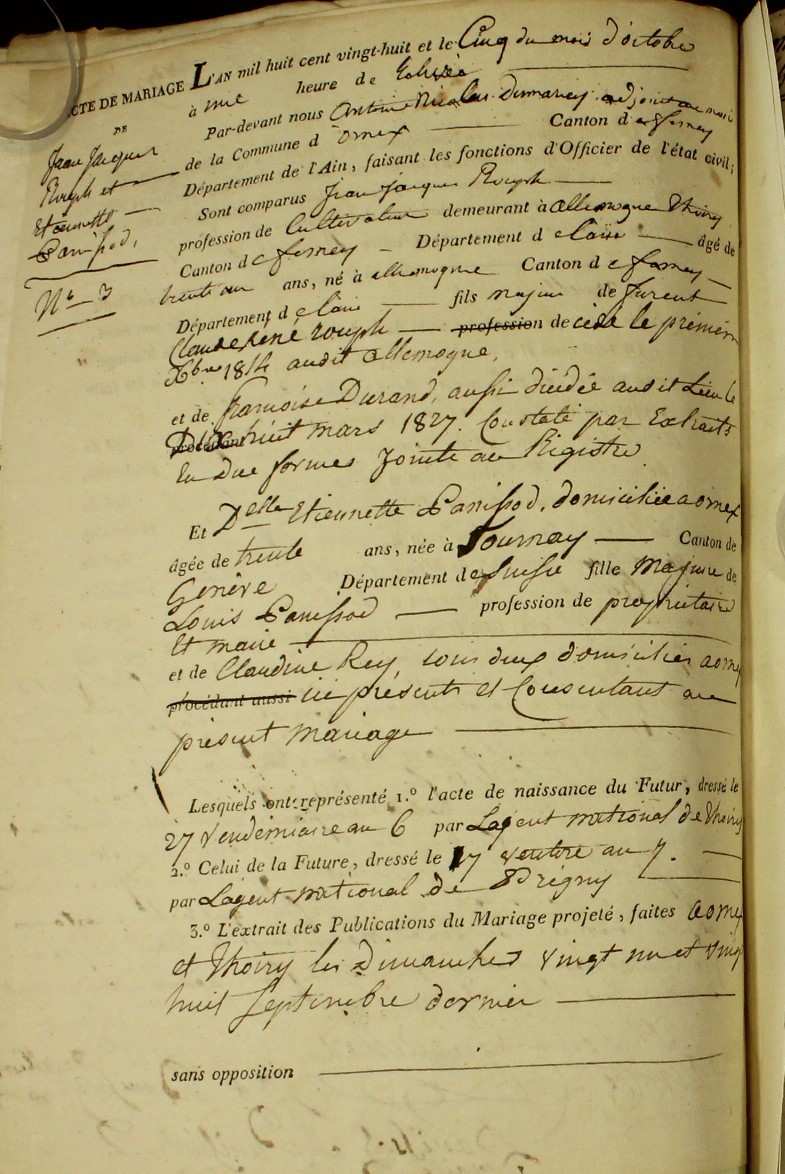 ACTE DE MARIAGE
DE
Jean Jacques
Rouph et
Etiennette
Panissod,
N° 3
L'AN mil huit cent vingt-huit et le Cinq du mois d'octobre
à une heure de
Par-devant nous Antoine Nicolas Dumarey adjoint au maire
de la Commune d'ornex Canton de ferney
Département de l'Ain, faisant les fonctions d'Officier de l'état civil;
Sont comparus Jean Jacques Rouph
profession de Cultivateur demeurant à allemogne Thoiry
Canton de ferney Département de lain âgé de
trente un ans, né à allemogne Canton de ferney
Département de lain fils majeur de furent
Claude René rouph profession de cédé le premier
Xbre 1814 audit allemogne,
et de françoise Durand, aussi décédée audit Lieu le
Dixhuit mars 1827. Constaté par Extraits
En due formes Jointe au Régistre
Et Delle Etiennette Panissod, domiciliée a ornex
âgée de trente ans, née à Tournay Canton de
Genève Département de Suisse fille Majeure de
Louis Panissod profession de propriétaire
Et maire
et de Claudine Rey, tous deux domiciliés a ornex
procédant aussi ici présents et Consentant au
présent mariage
Lesquels ont représenté 1.° l'acte de naissance du Futur, dressé le
27 Vendémiaire an 6 par Lagent national de Thoiry
2.° Celui de la Future, dressé le 17 ventose an 7.
par Lagent national de Prégny
3.° L'extrait des Publications du Mariage projeté, faites a ornex
et Thoiry les Dimanches vingt un et vingt
huit Septembre dernier
sans opposition